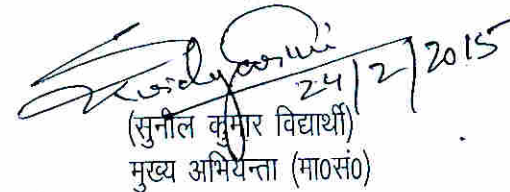 24/2/2015
(सुनील कुमार विद्यार्थी)
मुख्य अभियन्ता (मा०सं०)